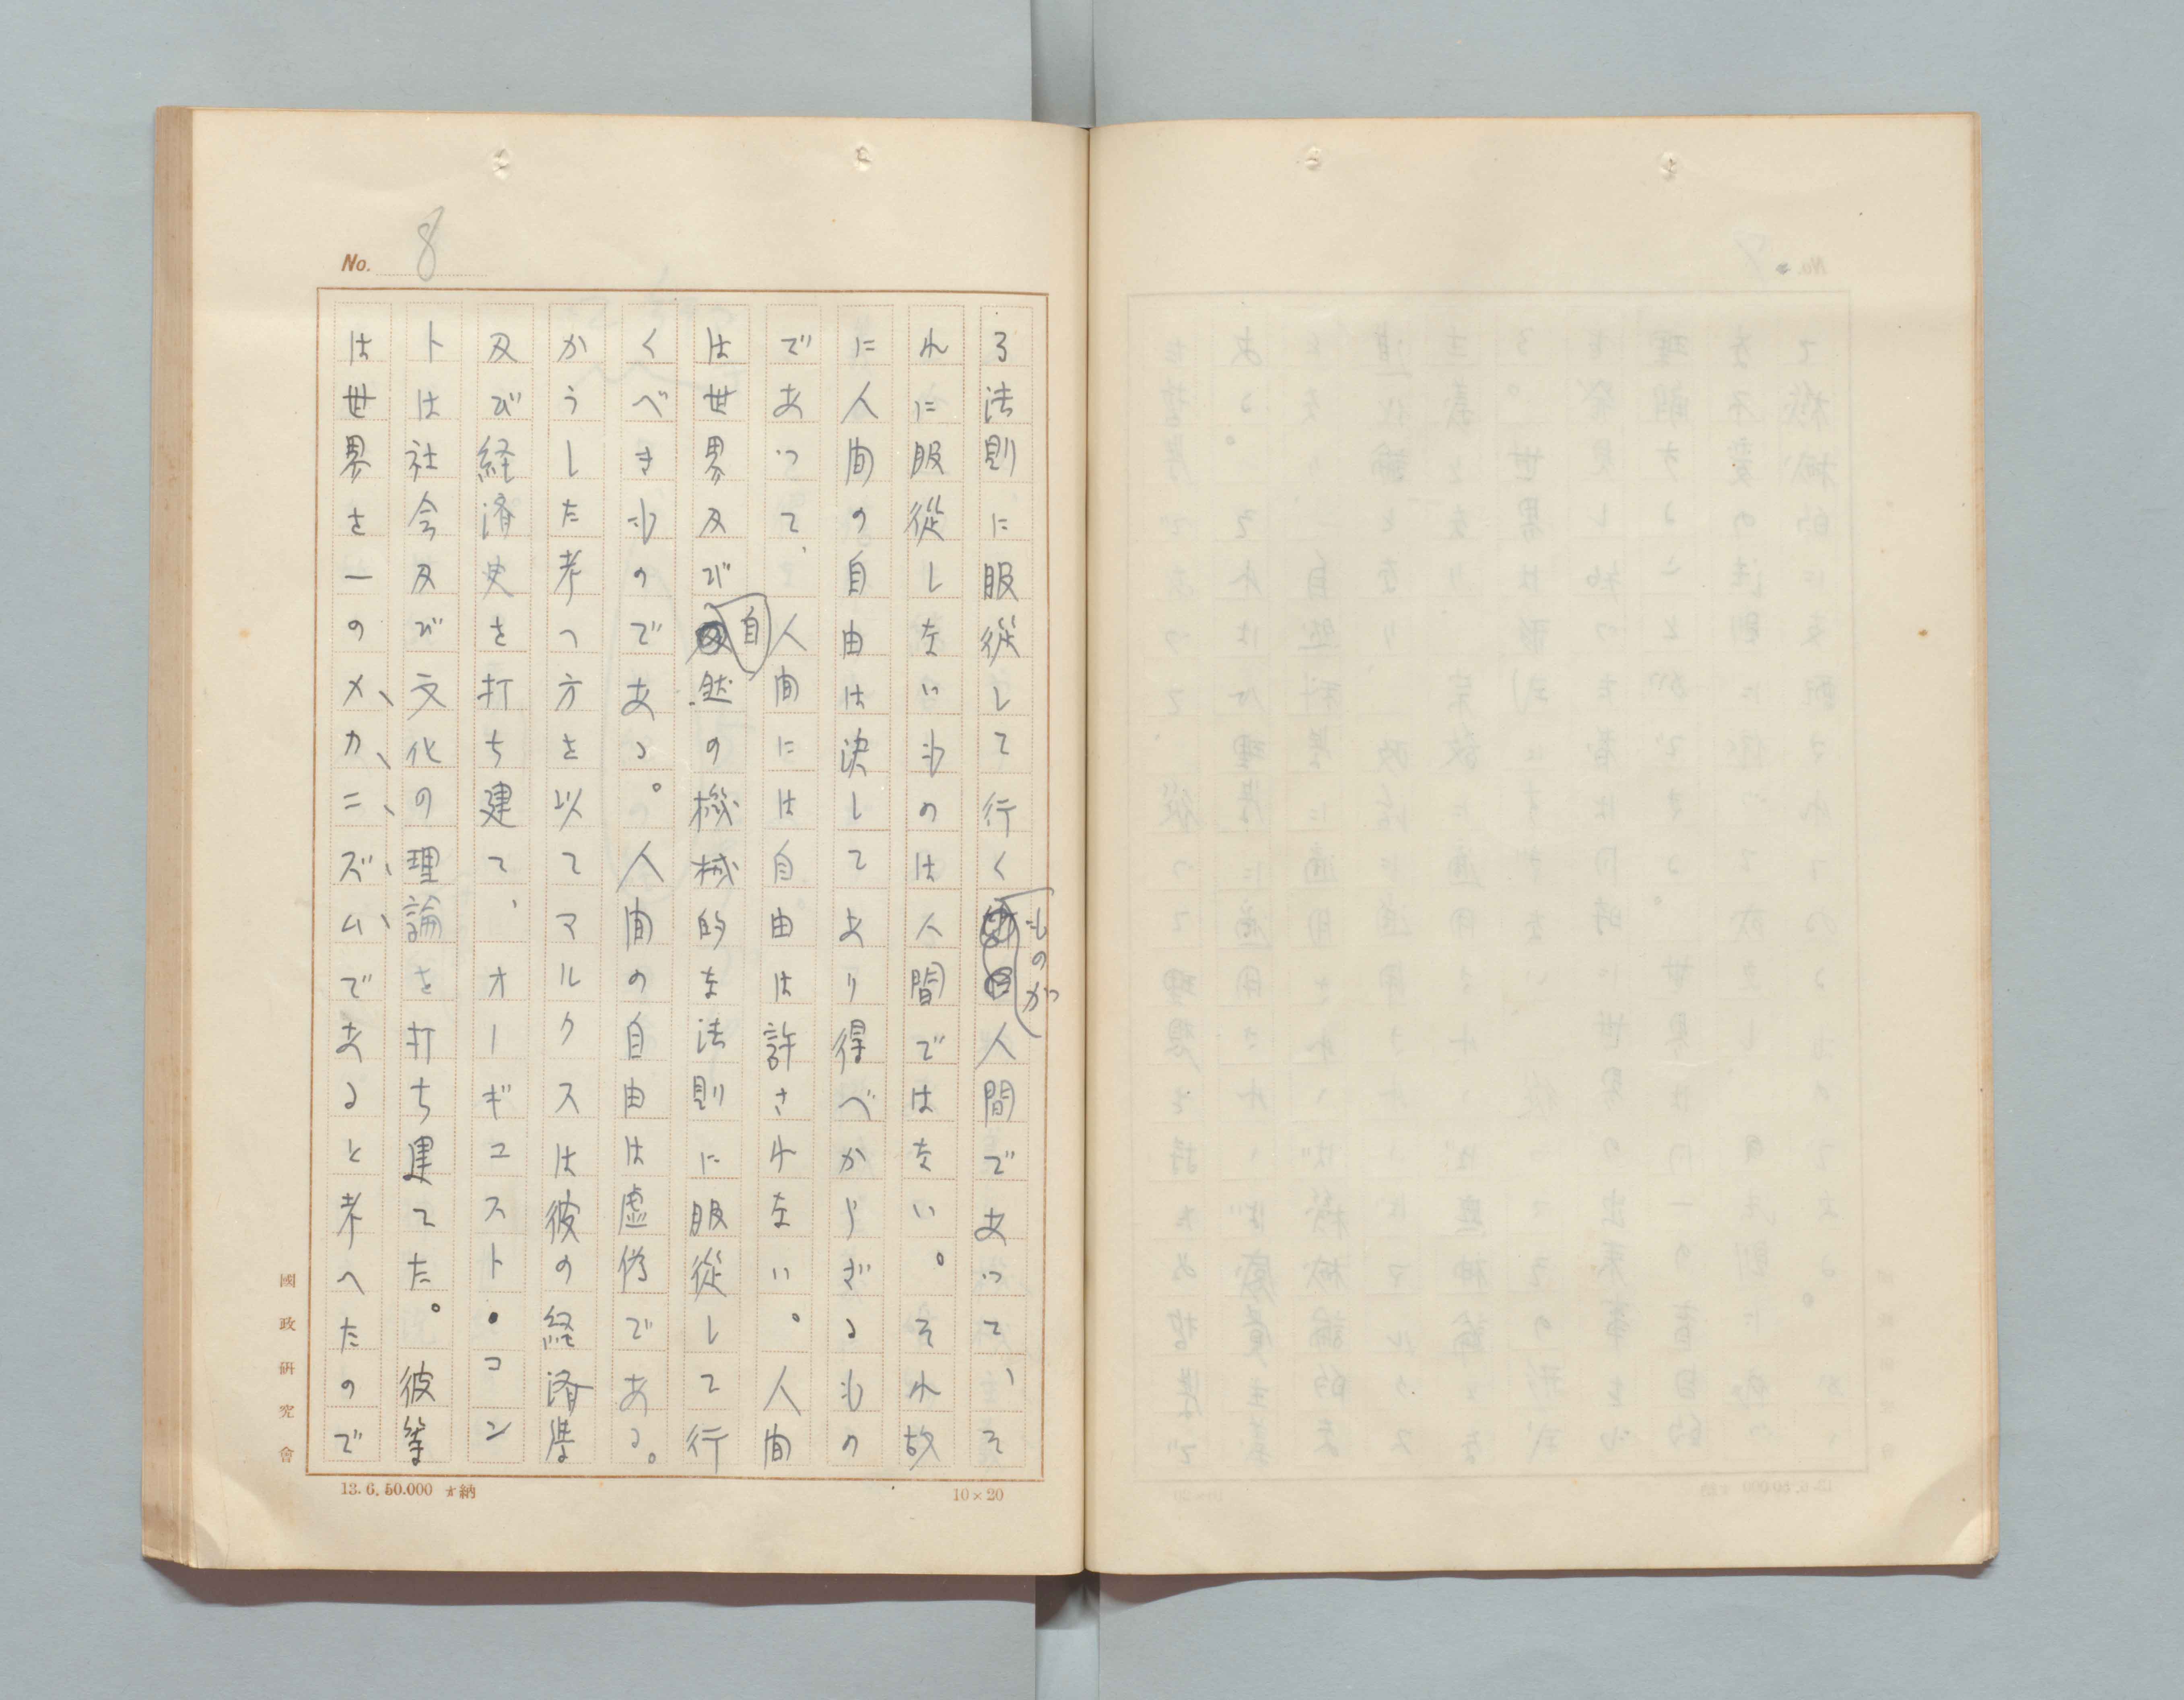 No. 8
る法則に服從して行くものが人間であつて、そ
れに服從しないものは人間ではない。それ故
に人間の自由は決してあり得べからざるもの
であつて、人間には自由は許されない。人間
は世界及び自然の機械的な法則に服從して行
くべきものである。人間の自由は虚偽である。
かうした考へ方を以てマルクスは彼の経済學
及び経済史を打ち建て、オーギユスト・コン
トは社会及び文化の理論を打ち建てた。彼等
は世界を一のメカニズムであると考へたので
國政研究會
13.6.50.000 納
10×20